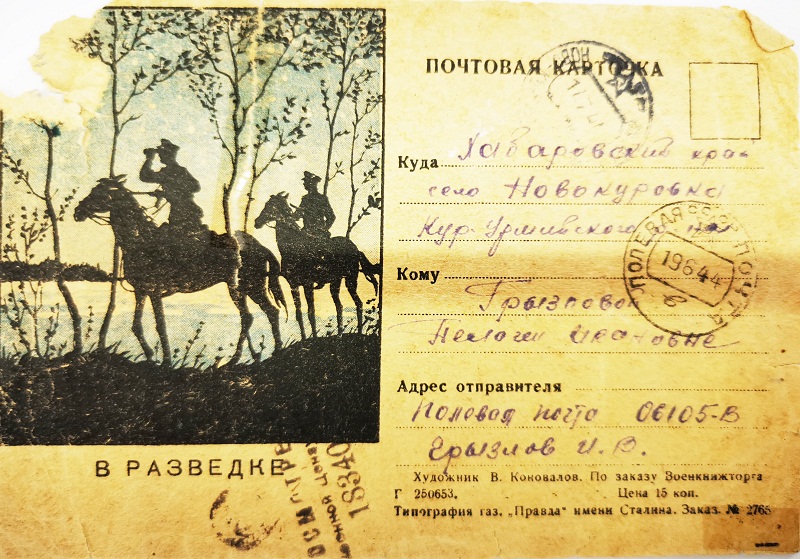 ПОЧТОВАЯ КАРТОЧКА
Куда Хабаровский край
село Новокуровка
Кур-Урмийского
ПОЛЕВАЯ ПОЧТА
19644
Кому
Грызловой
Пелагеи Ивановне
Адрес отправителя
Полевая почта 06105-В
Грызлов И. В.
В РАЗВЕДКЕ
18340
Художник В. Коновалов. По заказу Военкнижторга
Г 250653. Цена 15 коп.
Типография газ. „Правда" имени Сталина. Заказ. № 2765